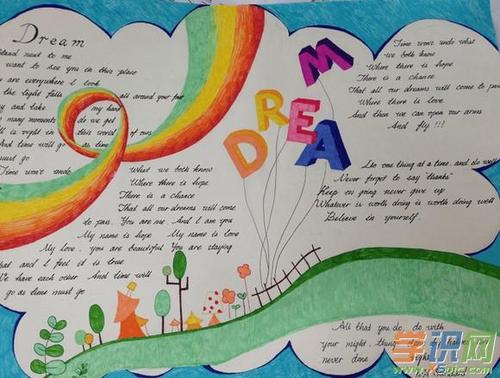 Dream
stand next to me
want to see you in this place
are everywhere I look
the light falls all around your feet
and take my hand
many moments do we get
is right in this world of ours
And time will go as time
must go
Time won't undo
What we both know
Where there is hope
There is a chance
That all our dreams will come
to pass. You are me And I am you
My name is hope My name is love
My love, you are beautiful You are staying
that and I feel it is true
We have each other And time will
go as time must go
DREAM
Time won't undo what
we both know
Where there is hope
There is a chance
That all our dreams will come to pass
Where there is love
And then we can open our arms
And fly !!!
Do one thing at a time, and do well
Never forget to say "thanks"
Keep on going never give up
Whatever is worth doing is worth doing well
Believe in yourself.
All that you do, do with
your might, things done by halves are
never done right
学识网